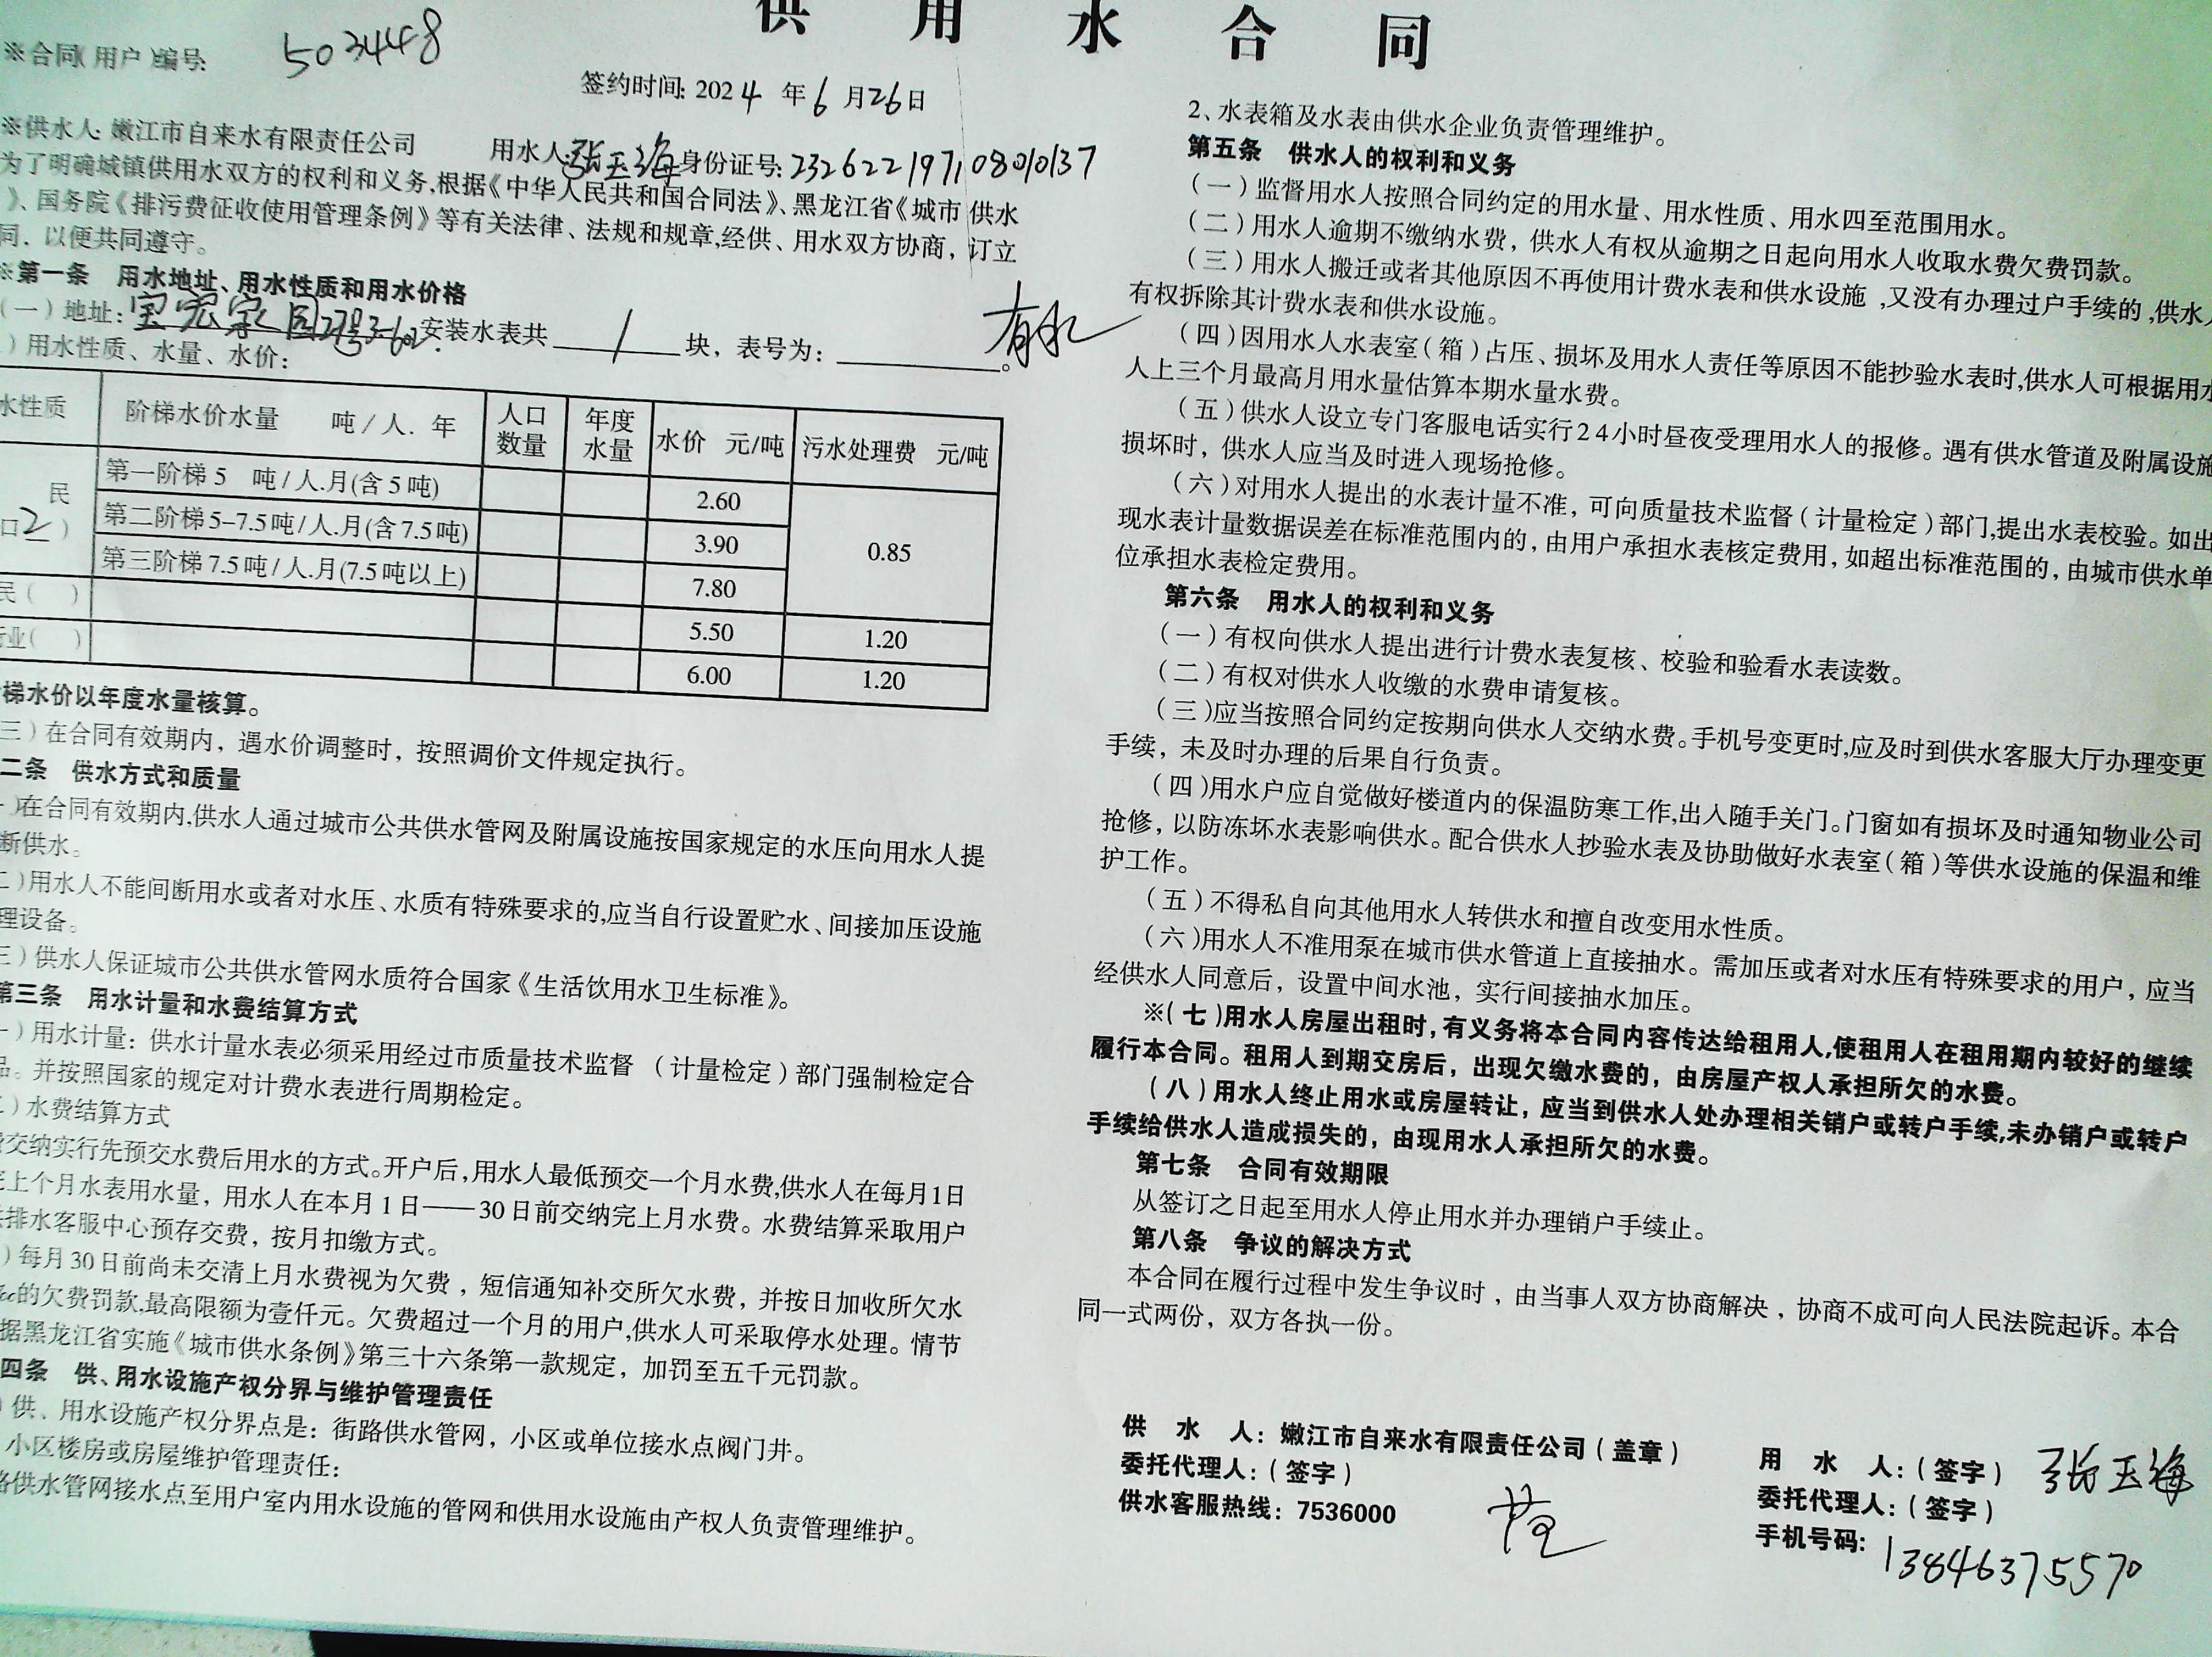 供用水合同
※合同(用户)编号: 503448
签约时间: 2024年6月26日
※供水人: 嫩江市自来水有限责任公司 用水人: 张玉海 身份证号: 232622197108010137
为了明确城镇供用水双方的权利和义务,根据《中华人民共和国合同法》、黑龙江省《城市供水
》、国务院《排污费征收使用管理条例》等有关法律、法规和规章,经供、用水双方协商，订立
同．以便共同遵守。
※第一条 用水地址、用水性质和用水价格
(一)地址: 宝宏家园27号3-602 安装水表共 1 块，表号为: 。
)用水性质、水量、水价:
水性质 阶梯水价水量 吨/人．年 人口数量 年度水量 水价 元/吨 污水处理费 元/吨
民
口2)
第一阶梯5 吨/人.月(含5吨) 2.60 0.85
第二阶梯5-7.5吨/人.月(含7.5吨) 3.90
第三阶梯7.5吨/人.月(7.5吨以上) 7.80
民( ) 5.50 1.20
业( ) 6.00 1.20
梯水价以年度水量核算。
三)在合同有效期内，遇水价调整时，按照调价文件规定执行。
二条 供水方式和质量
)在合同有效期内,供水人通过城市公共供水管网及附属设施按国家规定的水压向用水人提
断供水。
二)用水人不能间断用水或者对水压、水质有特殊要求的,应当自行设置贮水、间接加压设施
理设备。
三)供水人保证城市公共供水管网水质符合国家《生活饮用水卫生标准》。
第三条 用水计量和水费结算方式
一)用水计量：供水计量水表必须采用经过市质量技术监督 (计量检定)部门强制检定合
品。并按照国家的规定对计费水表进行周期检定。
)水费结算方式
交纳实行先预交水费后用水的方式。开户后,用水人最低预交一个月水费,供水人在每月1日
上个月水表用水量，用水人在本月1日——30日前交纳完上月水费。水费结算采取用户
排水客服中心预存交费，按月扣缴方式。
)每月30日前尚未交清上月水费视为欠费，短信通知补交所欠水费，并按日加收所欠水
的欠费罚款,最高限额为壹仟元。欠费超过一个月的用户,供水人可采取停水处理。情节
据黑龙江省实施《城市供水条例》第三十六条第一款规定，加罚至五千元罚款。
四条 供、用水设施产权分界与维护管理责任
)供、用水设施产权分界点是：街路供水管网，小区或单位接水点阀门井。
小区楼房或房屋维护管理责任:
供水管网接水点至用户室内用水设施的管网和供用水设施由产权人负责管理维护。
2、水表箱及水表由供水企业负责管理维护。
第五条 供水人的权利和义务
(一)监督用水人按照合同约定的用水量、用水性质、用水四至范围用水。
(二)用水人逾期不缴纳水费，供水人有权从逾期之日起向用水人收取水费欠费罚款。
(三)用水人搬迁或者其他原因不再使用计费水表和供水设施,又没有办理过户手续的,供水人
有权拆除其计费水表和供水设施。
(四)因用水人水表室(箱)占压、损坏及用水人责任等原因不能抄验水表时,供水人可根据用水
人上三个月最高月用水量估算本期水量水费。
(五)供水人设立专门客服电话实行24小时昼夜受理用水人的报修。遇有供水管道及附属设施
损坏时，供水人应当及时进入现场抢修。
(六)对用水人提出的水表计量不准，可向质量技术监督(计量检定)部门,提出水表校验。如出
现水表计量数据误差在标准范围内的，由用户承担水表核定费用，如超出标准范围的，由城市供水单
位承担水表检定费用。
第六条 用水人的权利和义务
(一)有权向供水人提出进行计费水表复核、校验和验看水表读数。
(二)有权对供水人收缴的水费申请复核。
(三)应当按照合同约定按期向供水人交纳水费。手机号变更时,应及时到供水客服大厅办理变更
手续，未及时办理的后果自行负责。
(四)用水户应自觉做好楼道内的保温防寒工作,出入随手关门。门窗如有损坏及时通知物业公司
抢修，以防冻坏水表影响供水。配合供水人抄验水表及协助做好水表室(箱)等供水设施的保温和维
护工作。
(五)不得私自向其他用水人转供水和擅自改变用水性质。
(六)用水人不准用泵在城市供水管道上直接抽水。需加压或者对水压有特殊要求的用户，应当
经供水人同意后，设置中间水池，实行间接抽水加压。
※(七)用水人房屋出租时,有义务将本合同内容传达给租用人,使租用人在租用期内较好的继续
履行本合同。租用人到期交房后，出现欠缴水费的，由房屋产权人承担所欠的水费。
(八)用水人终止用水或房屋转让，应当到供水人处办理相关销户或转户手续,未办销户或转户
手续给供水人造成损失的，由现用水人承担所欠的水费。
第七条 合同有效期限
从签订之日起至用水人停止用水并办理销户手续止。
第八条 争议的解决方式
本合同在履行过程中发生争议时，由当事人双方协商解决，协商不成可向人民法院起诉。本合
同一式两份，双方各执一份。
供 水 人：嫩江市自来水有限责任公司(盖章)
委托代理人：(签字)
供水客服热线：7536000
用 水 人：(签字) 张玉海
委托代理人：(签字)
手机号码: 13846375570